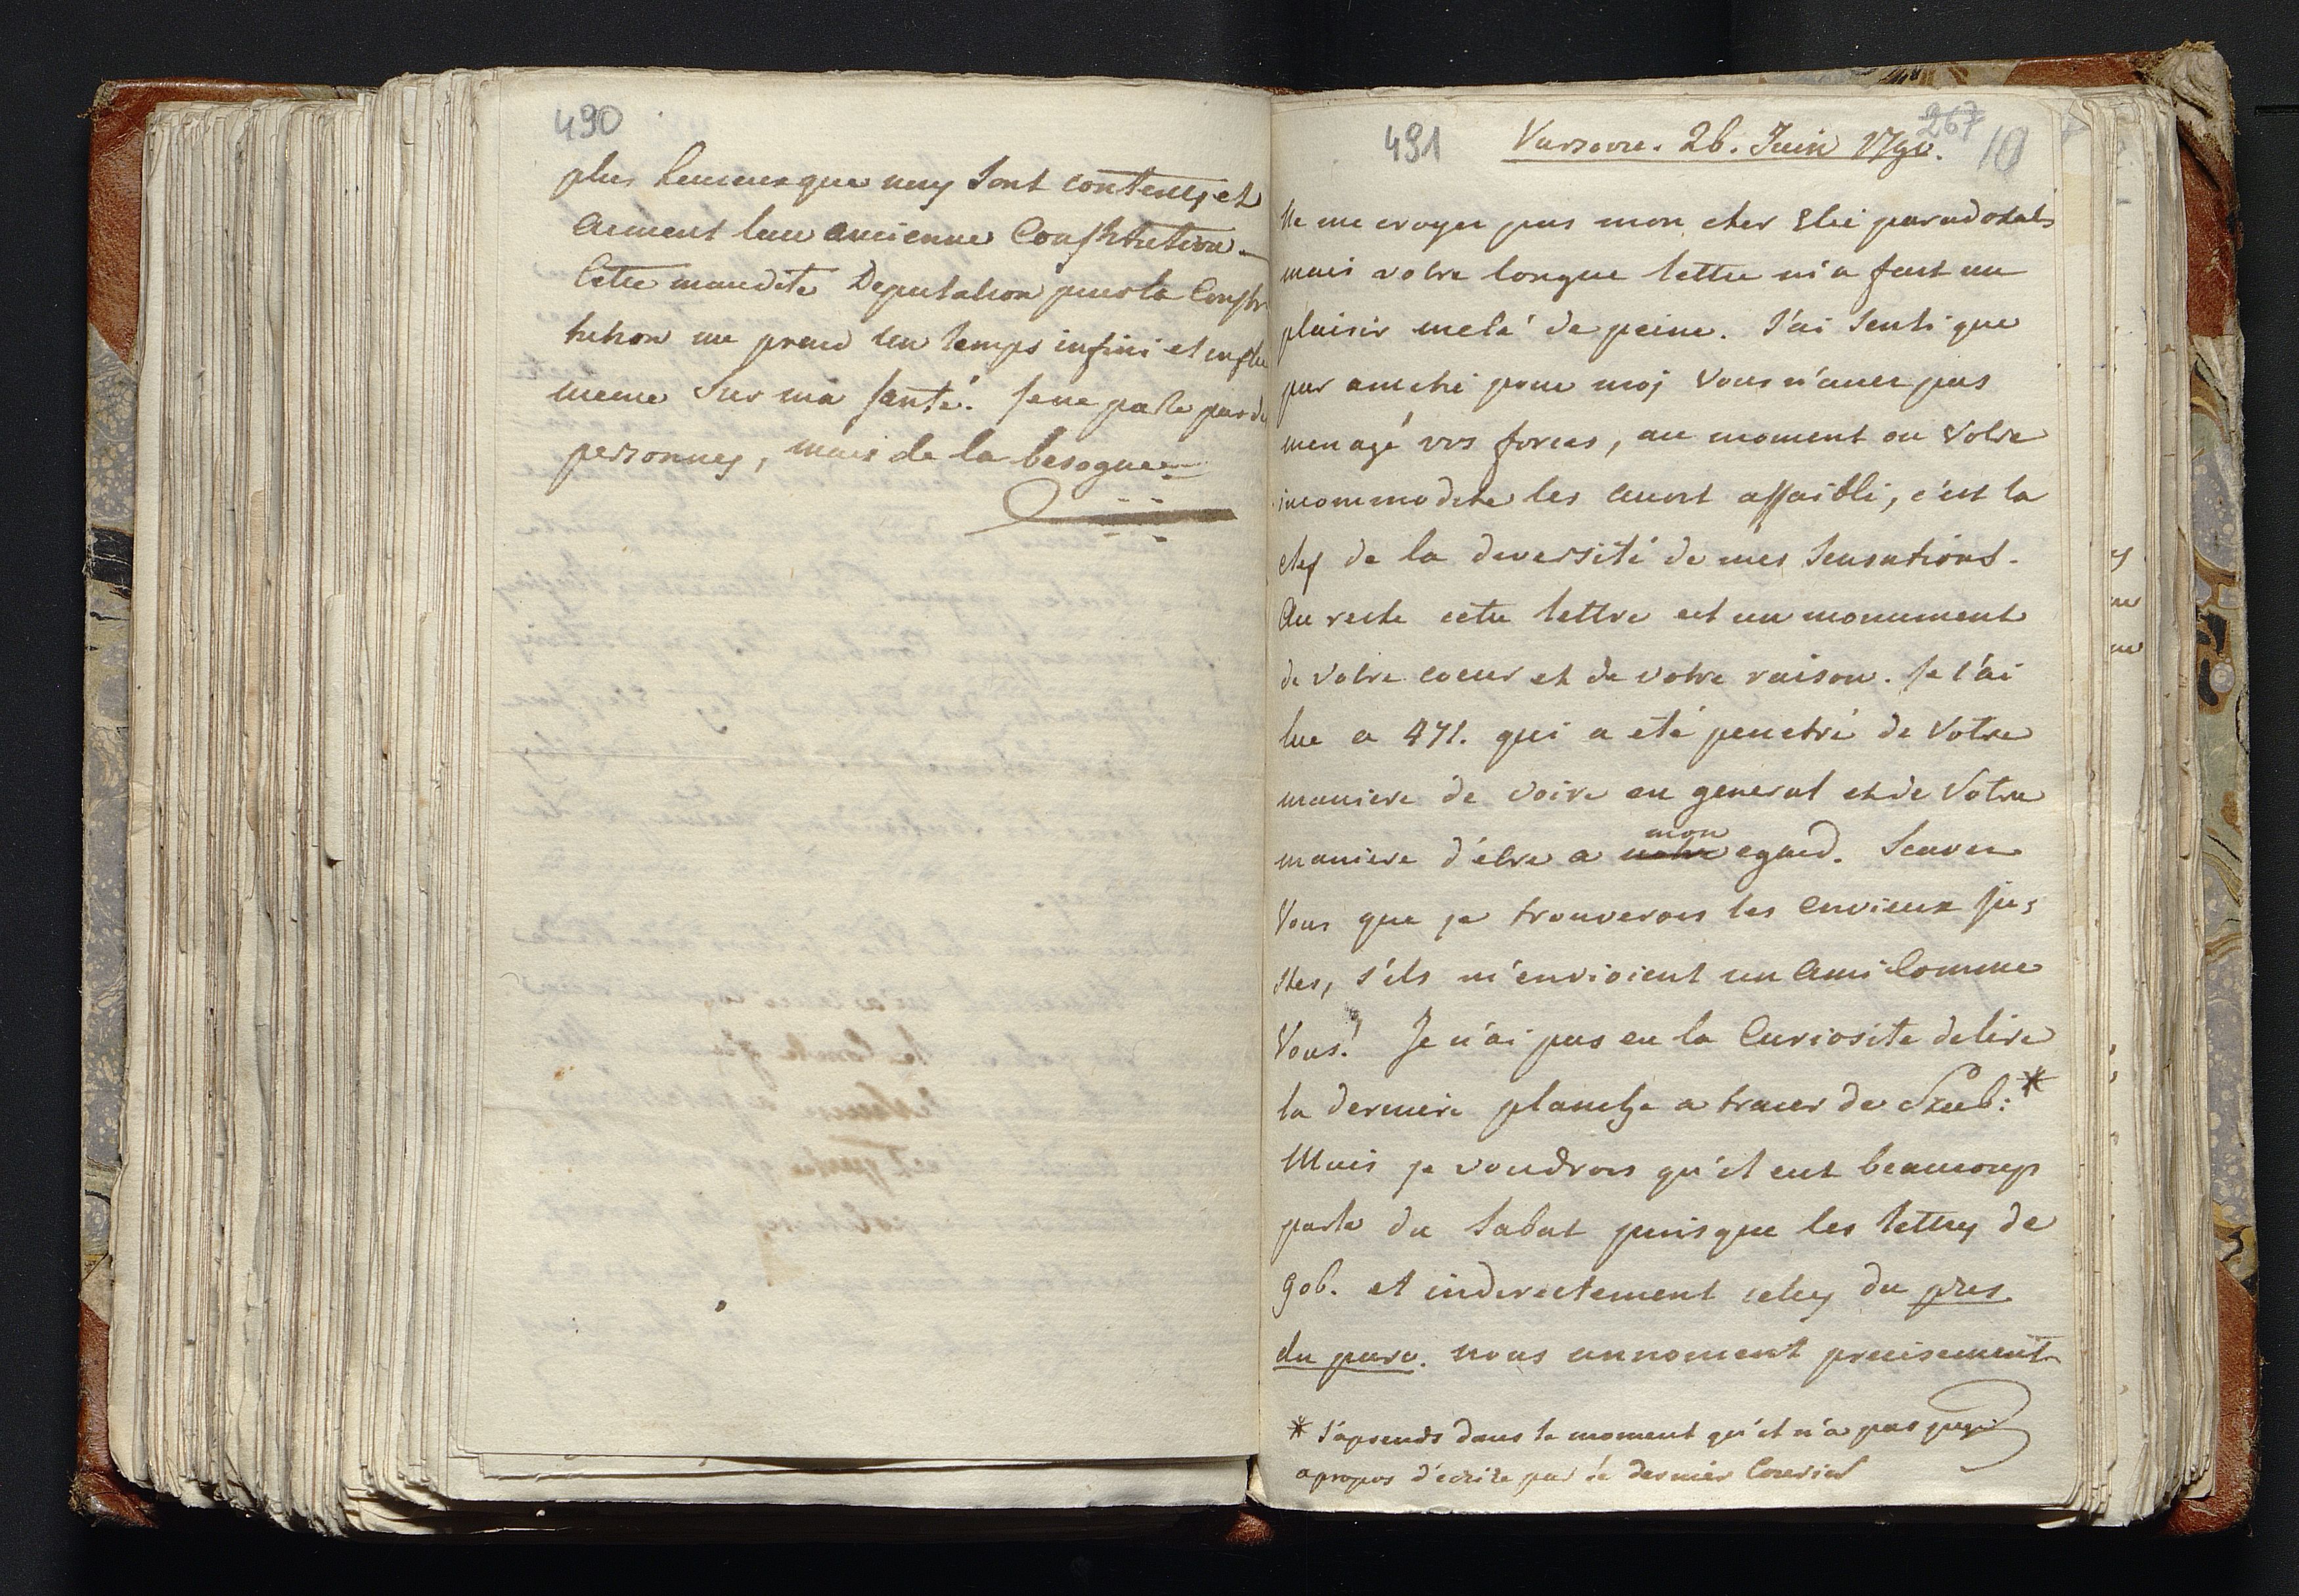 490
plus heureux que nous sont contents et
aiment leur ancienne Constitution -
Cette maudite Deputation pour la Consti
tution me prend un temps infini et influe
meme sur ma santé. Je ne parle pas de
personnes, mais de la besogne
491 Varsovie. 26. Juin 1790. 267 10
Ne me croyez pas mon cher Elie paradoxal
mais votre longue lettre m'a fait un
plaisir melé de peine. J'ai senti que
par amitié pour moi vous n'avez pas
menagé vos forces, au moment ou votre
incommodite les avoit affaibli, c'est la
clef de la diversité de mes sensations.
Au reste cette lettre est un monument
de votre coeur et de votre raison. Je l'ai
lue a 471. qui a eté penetré de votre
maniere de voire en general et de votre
maniere d'être a notre mon egard. Scavez
Vous que je trouverois les envieux ju,
stes, s'ils m'envioient un ami comme
Vous! Je n'ai pas eu la Curiosite de lire
la derniere planche a tracer de Szeb: *
Mais je voudrois qu'il eut beaucoup
parlé du Sabat puisque les lettres de
gob. et indirectement celles du pres.
du parc. nous annoncent precisement
* J'aprends dans le moment qu'il n'a pas jugé
apropos d'ecrire par le dernier Courier